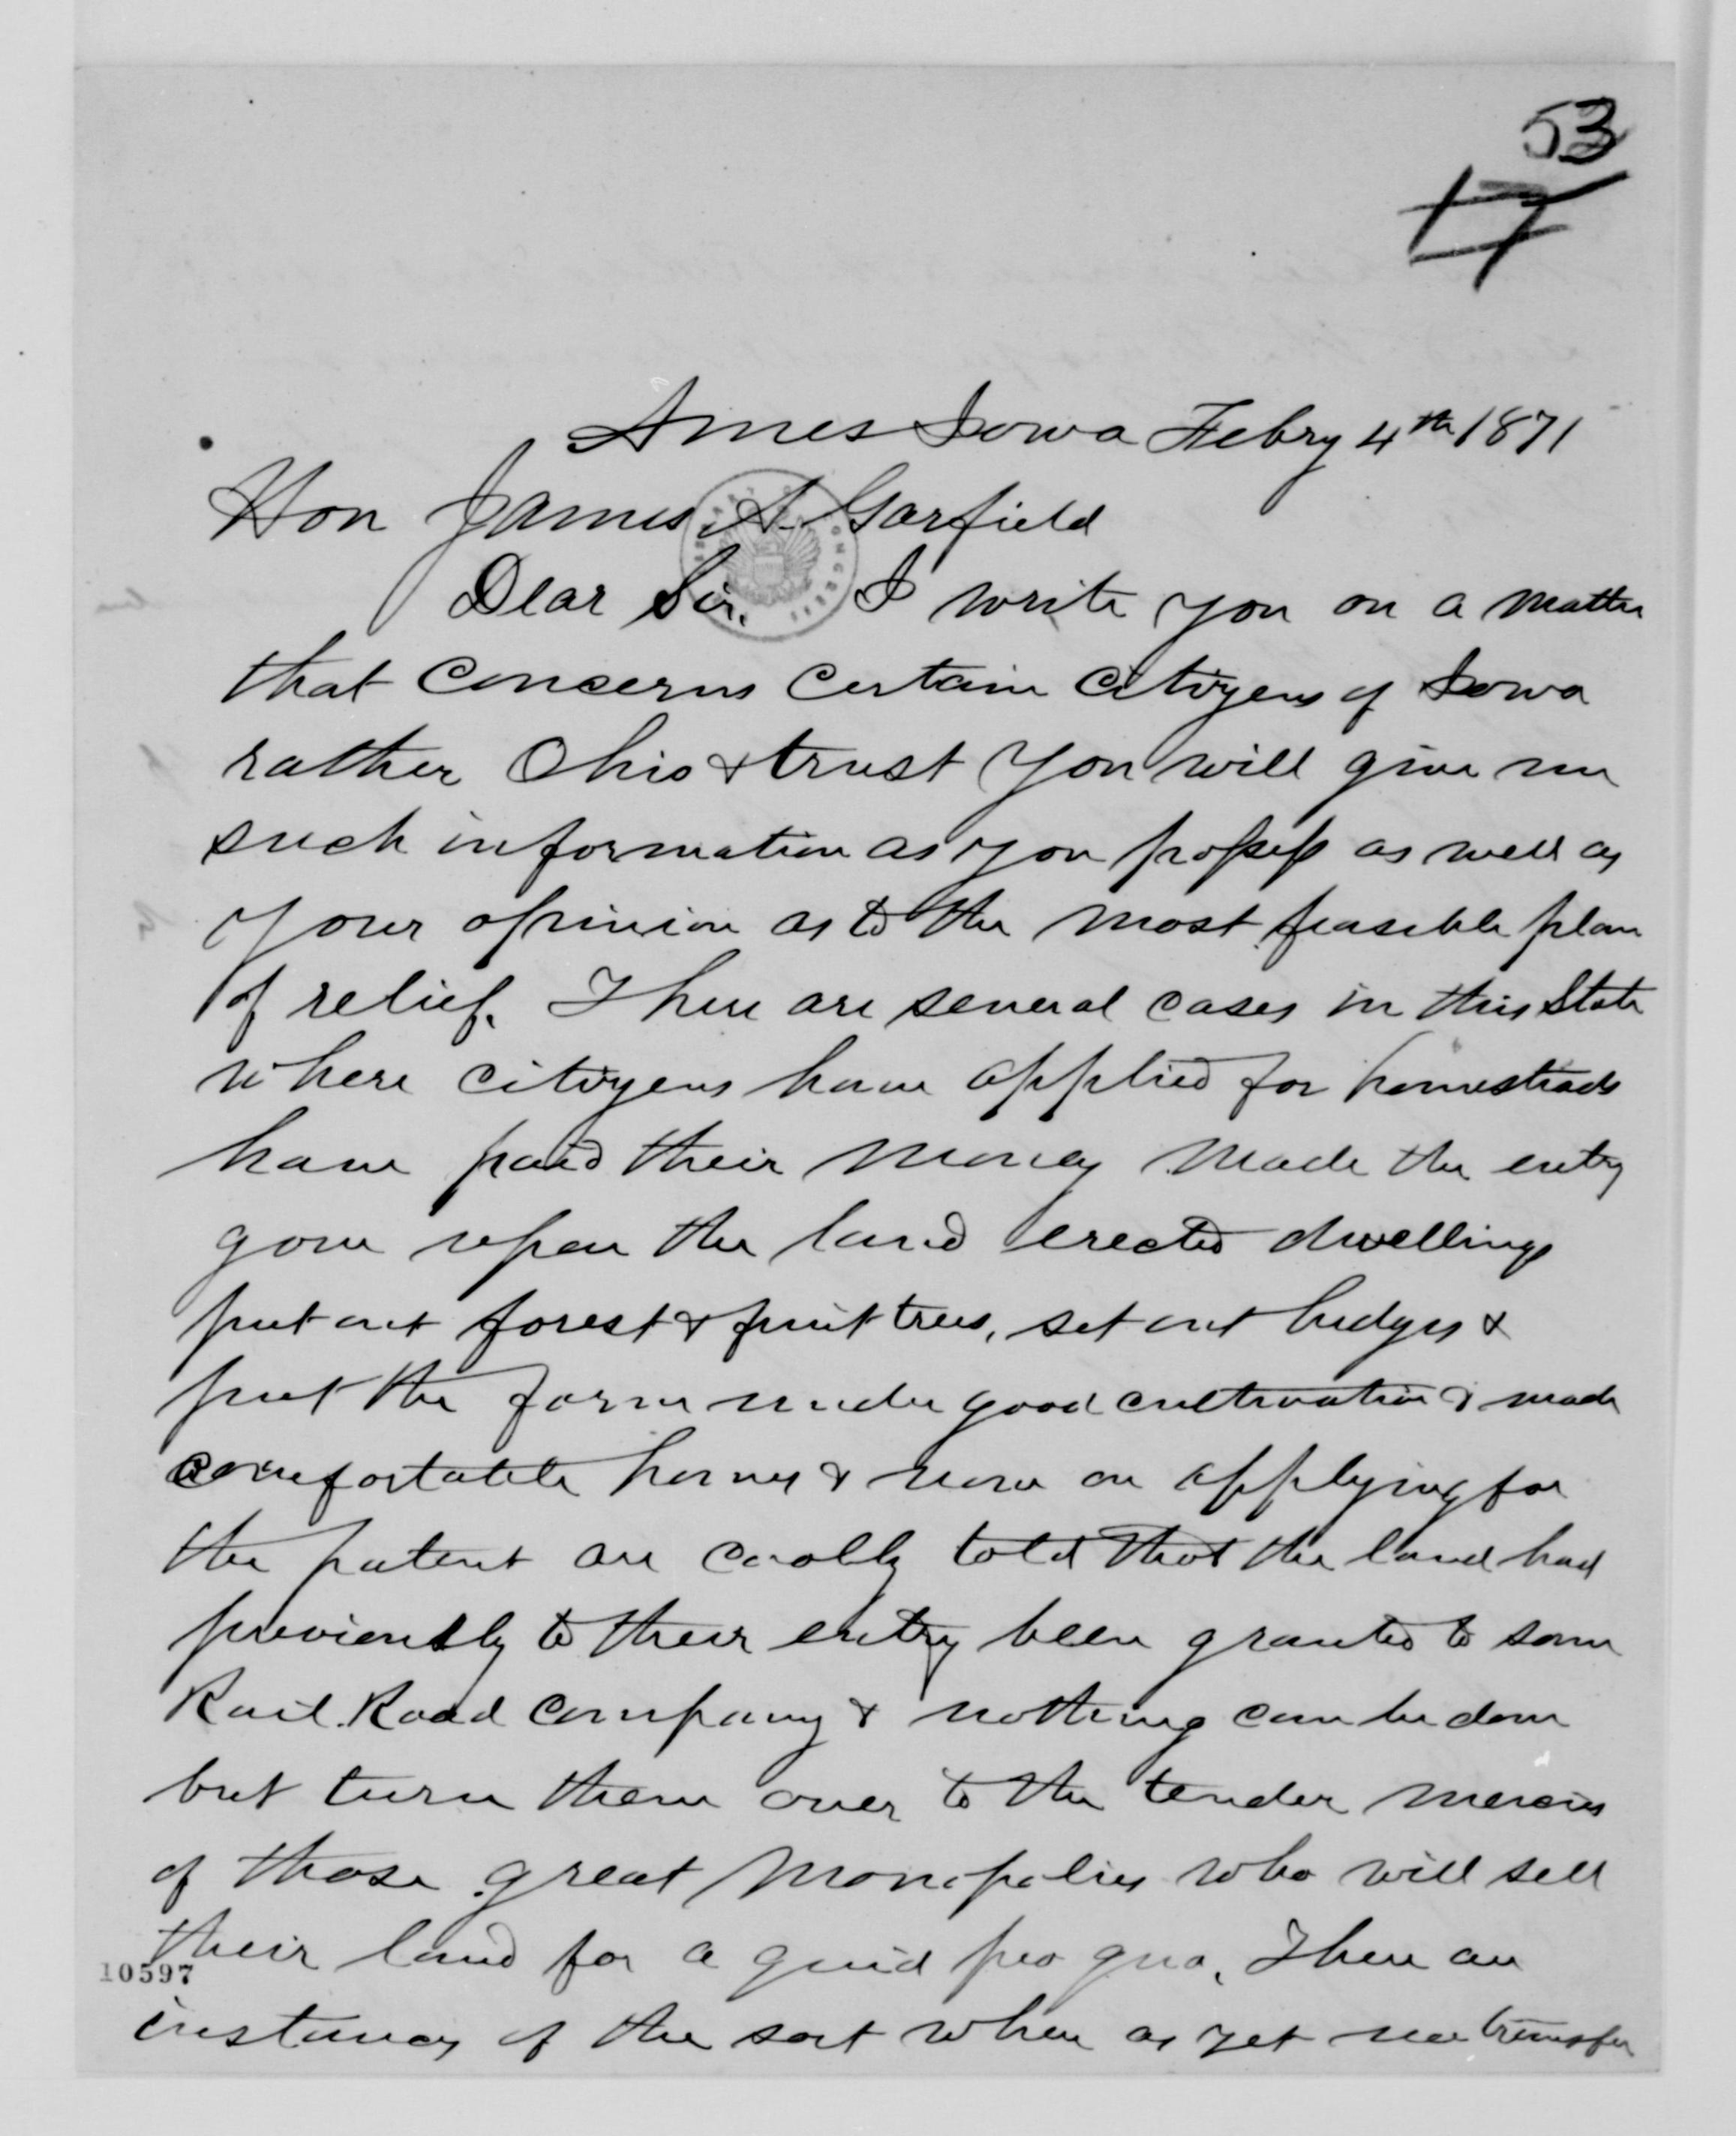 53
17
Ames Iowa Febry 4th 1871
Hon James A. Garfield
Dear Sir. I write you on a matter
that concerns certain citizens of Iowa
rather Ohio & trust you will give me
such information as you possess as well as
your opinion as to the most feasible plan
of relief. There are several cases in this State
where citizens have applied for homesteads
have paid their money made the entry
gone upon the land erected dwellings
put out forest & fruit trees, set out hedges &
put the farm under good cultivation & made
comfortable homes & now on applying for
the patent are coolly told that the land had
previously to their entry been granted to some
Rail Road company & nothing can be done
but turn them over to the tender mercies
of those great monopolies who will sell
their land for a quid pro quo. There are
10597
instances of the sort where as yet no transfer